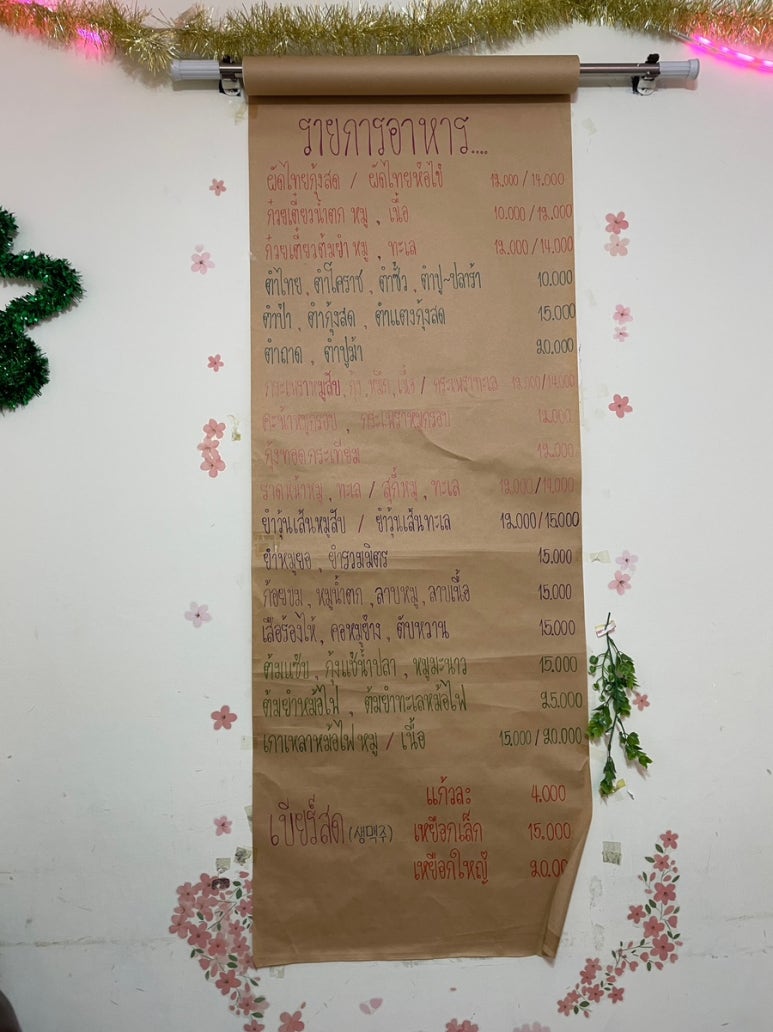 รายการอาหาร....
ผัดไทยกุ้งสด / ผัดไทยห่อไข่ 12.000 / 14.000
ก๋วยเตี๋ยวน้ำตก หมู , เนื้อ 10.000 / 12.000
ก๋วยเตี๋ยวต้มยำ หมู , ทะเล 12.000 / 14.000
ตำไทย , ตำโคราช , ตำซั่ว , ตำปู~ปลาร้า 10.000
ตำป่า , ตำกุ้งสด , ตำแตงกุ้งสด 15.000
ตำถาด , ตำปูม้า 20.000
กระเพราหมูสับ , กุ้ง , หมึก , เนื้อ / กระเพราทะเล 12.000/14.000
คะน้าหมูกรอบ , กระเพราหมูกรอบ 12.000
กุ้งทอดกระเทียม 12.000
ราดหน้าหมู , ทะเล / สุกี้หมู , ทะเล 12.000/14.000
ยำวุ้นเส้นหมูสับ / ยำวุ้นเส้นทะเล 12.000/15.000
ยำหมูยอ , ยำรวมมิตร 15.000
ก้อยขม , หมูน้ำตก , ลาบหมู , ลาบเนื้อ 15.000
เสือร้องไห้ , คอหมูย่าง , ตับหวาน 15.000
ต้มแซ่บ , กุ้งแช่น้ำปลา , หมูมะนาว 15.000
ต้มยำหม้อไฟ , ต้มยำทะเลหม้อไฟ 25.000
เกาเหลาหม้อไฟ หมู / เนื้อ 15.000 / 20.000
เบียร์สด (생맥주)
แก้วละ 4.000
เหยือกเล็ก 15.000
เหยือกใหญ่ 20.00